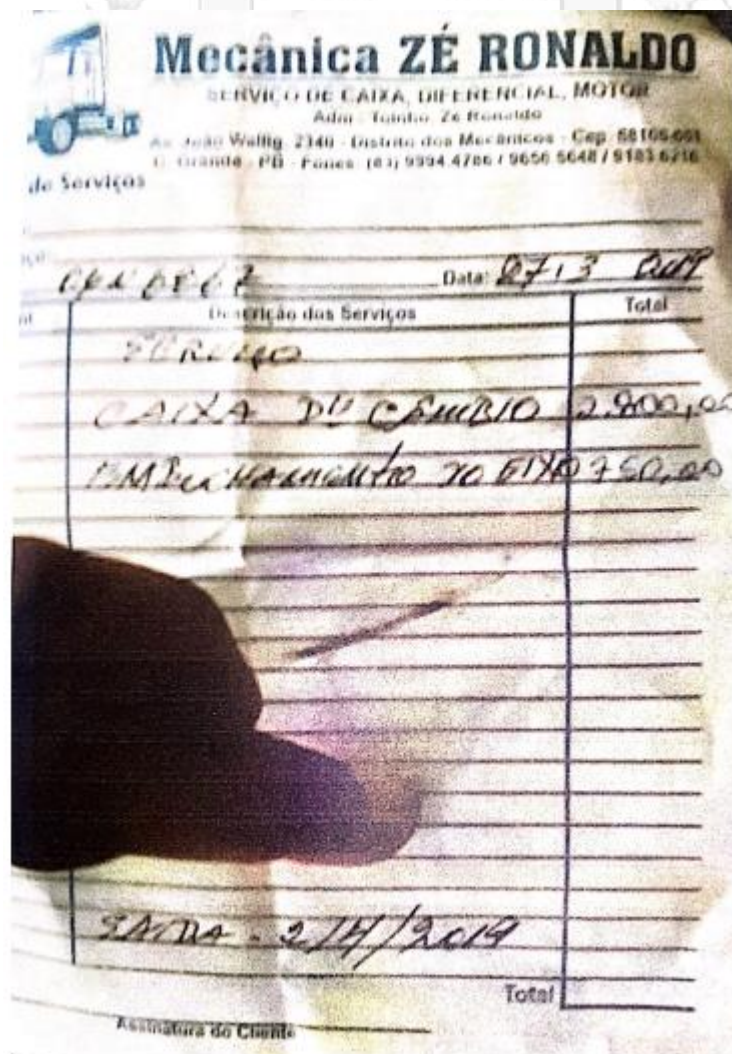 Mecânica ZÉ RONALDO
SERVIÇO DE CAIXA, DIFERENCIAL, MOTOR
Adm: Toinho Zé Ronaldo
Av. João Wallig, 2340 - Distrito dos Mecânicos - Cep. 58105-
C. Grande - PB - Fones: (83) 9994.4786 / 9656 5648 / 9183.6216
de Serviços
Data: 27 3
Descrição dos Serviços Total
CAIXA DE CAMBIO 2.200,00
EIXO 750,00
SAIDA - 2/4/2019
Total
Assinatura do Cliente